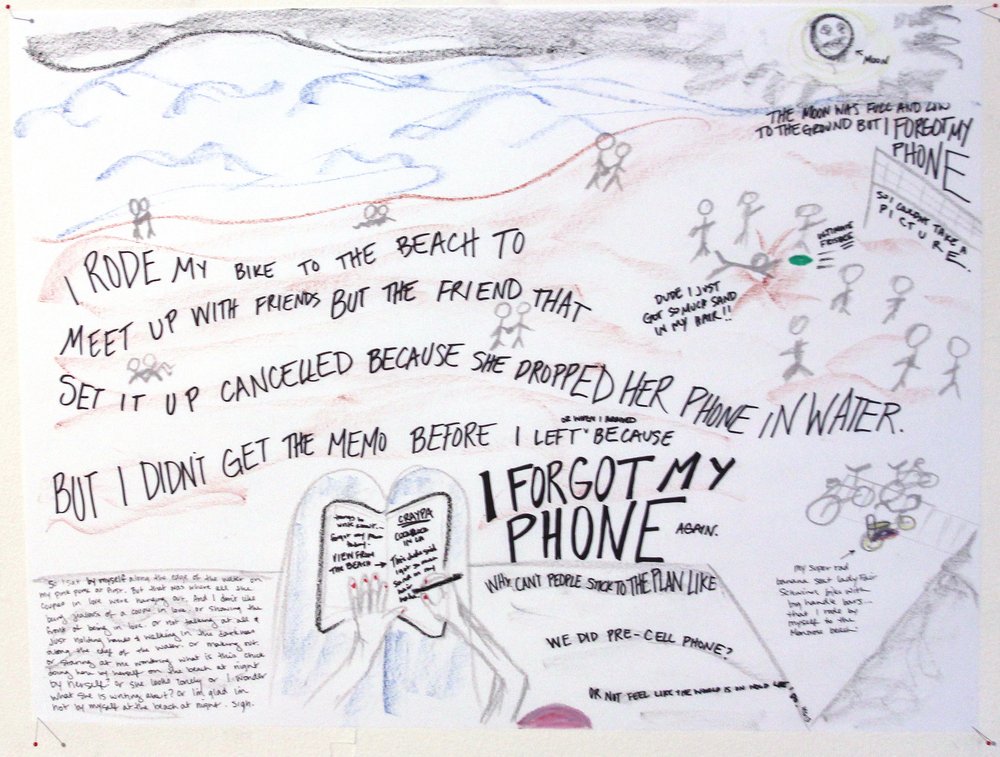 ← MOON
THE MOON WAS FULL AND LOW
TO THE GROUND BUT I FORGOT MY
PHONE
SO I COULDN'T TAKE A
PICTURE.
ULTIMATE
FRISBEE
DUDE I JUST
GOT SO MUCH SAND
IN MY HAIR!!
I RODE MY BIKE TO THE BEACH TO
MEET UP WITH FRIENDS BUT THE FRIEND THAT
SET IT UP CANCELLED BECAUSE SHE DROPPED HER PHONE IN WATER.
OR WHEN I ARRIVED
BUT I DIDN'T GET THE MEMO BEFORE I LEFT BECAUSE
I FORGOT MY
PHONE AGAIN.
things to
write about...
forgot my phone
today.
VIEW FROM
THE BEACH →
CRAYPA
IN LA
This dude said
I got so much
sand in my
hair
WHY CAN'T PEOPLE STICK TO THE PLAN LIKE
WE DID PRE-CELL PHONE?
OR NOT FEEL LIKE THE WORLD IS ON HOLD
my super rad
banana seat lady Fair
Schwinn bike with
big handle bars...
that I rode by
myself to the
beach.
So I sat by myself along the edge of the water on
my pink But that was where all the
couples in love were hanging out. And I don't like
being jealous of a couple in love, or showing the
front of being in love. or not talking at all &
just holding hands & walking in the darkness
along the edge of the water. or making out
or staring at me wondering what is this chick
doing here by herself on the beach at night
by herself? or she looks lonely or I wonder
what she is writing about? or I'm glad I'm
not by myself at the beach at night. Sigh.